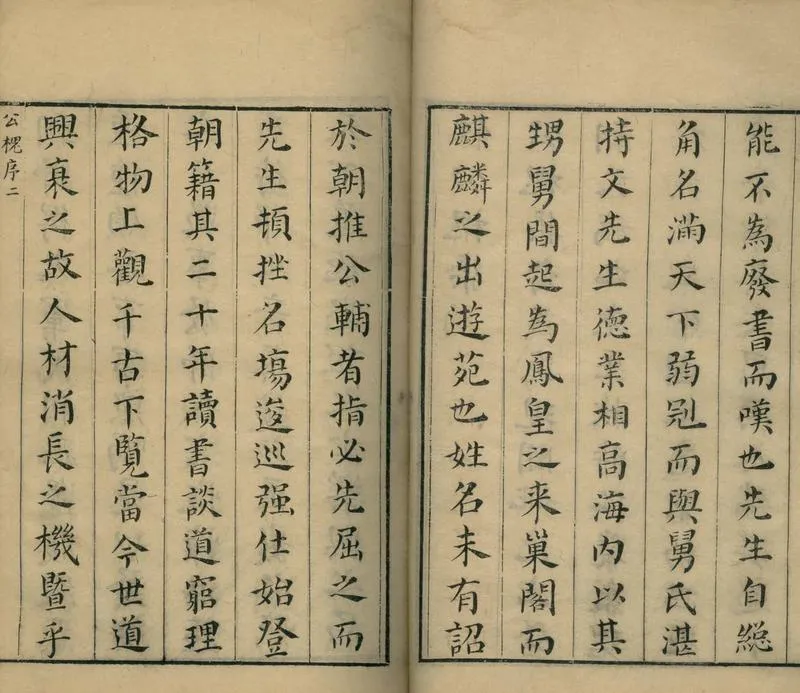 能不為廢書而嘆也先生自緫
角名滿天下弱冠而與舅氏湛
持文先生德業相高海內以其
甥舅間起為鳳皇之来巢閣而
麒麟之出遊苑也姓名未有詔
於朝推公輔者指必先屈之而
先生頓挫名塲逡巡强仕始登
朝籍其二十年讀書談道窮理
格物上觀千古下覽當今世道
興衰之故人材消長之機暨乎
公槐序二